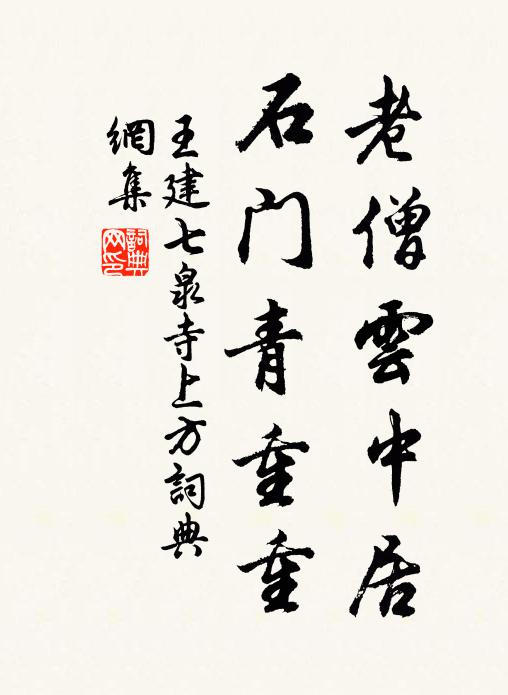 老僧雲中居
石门青重重
王建七泉寺上方詞典
網集
詞典
网印